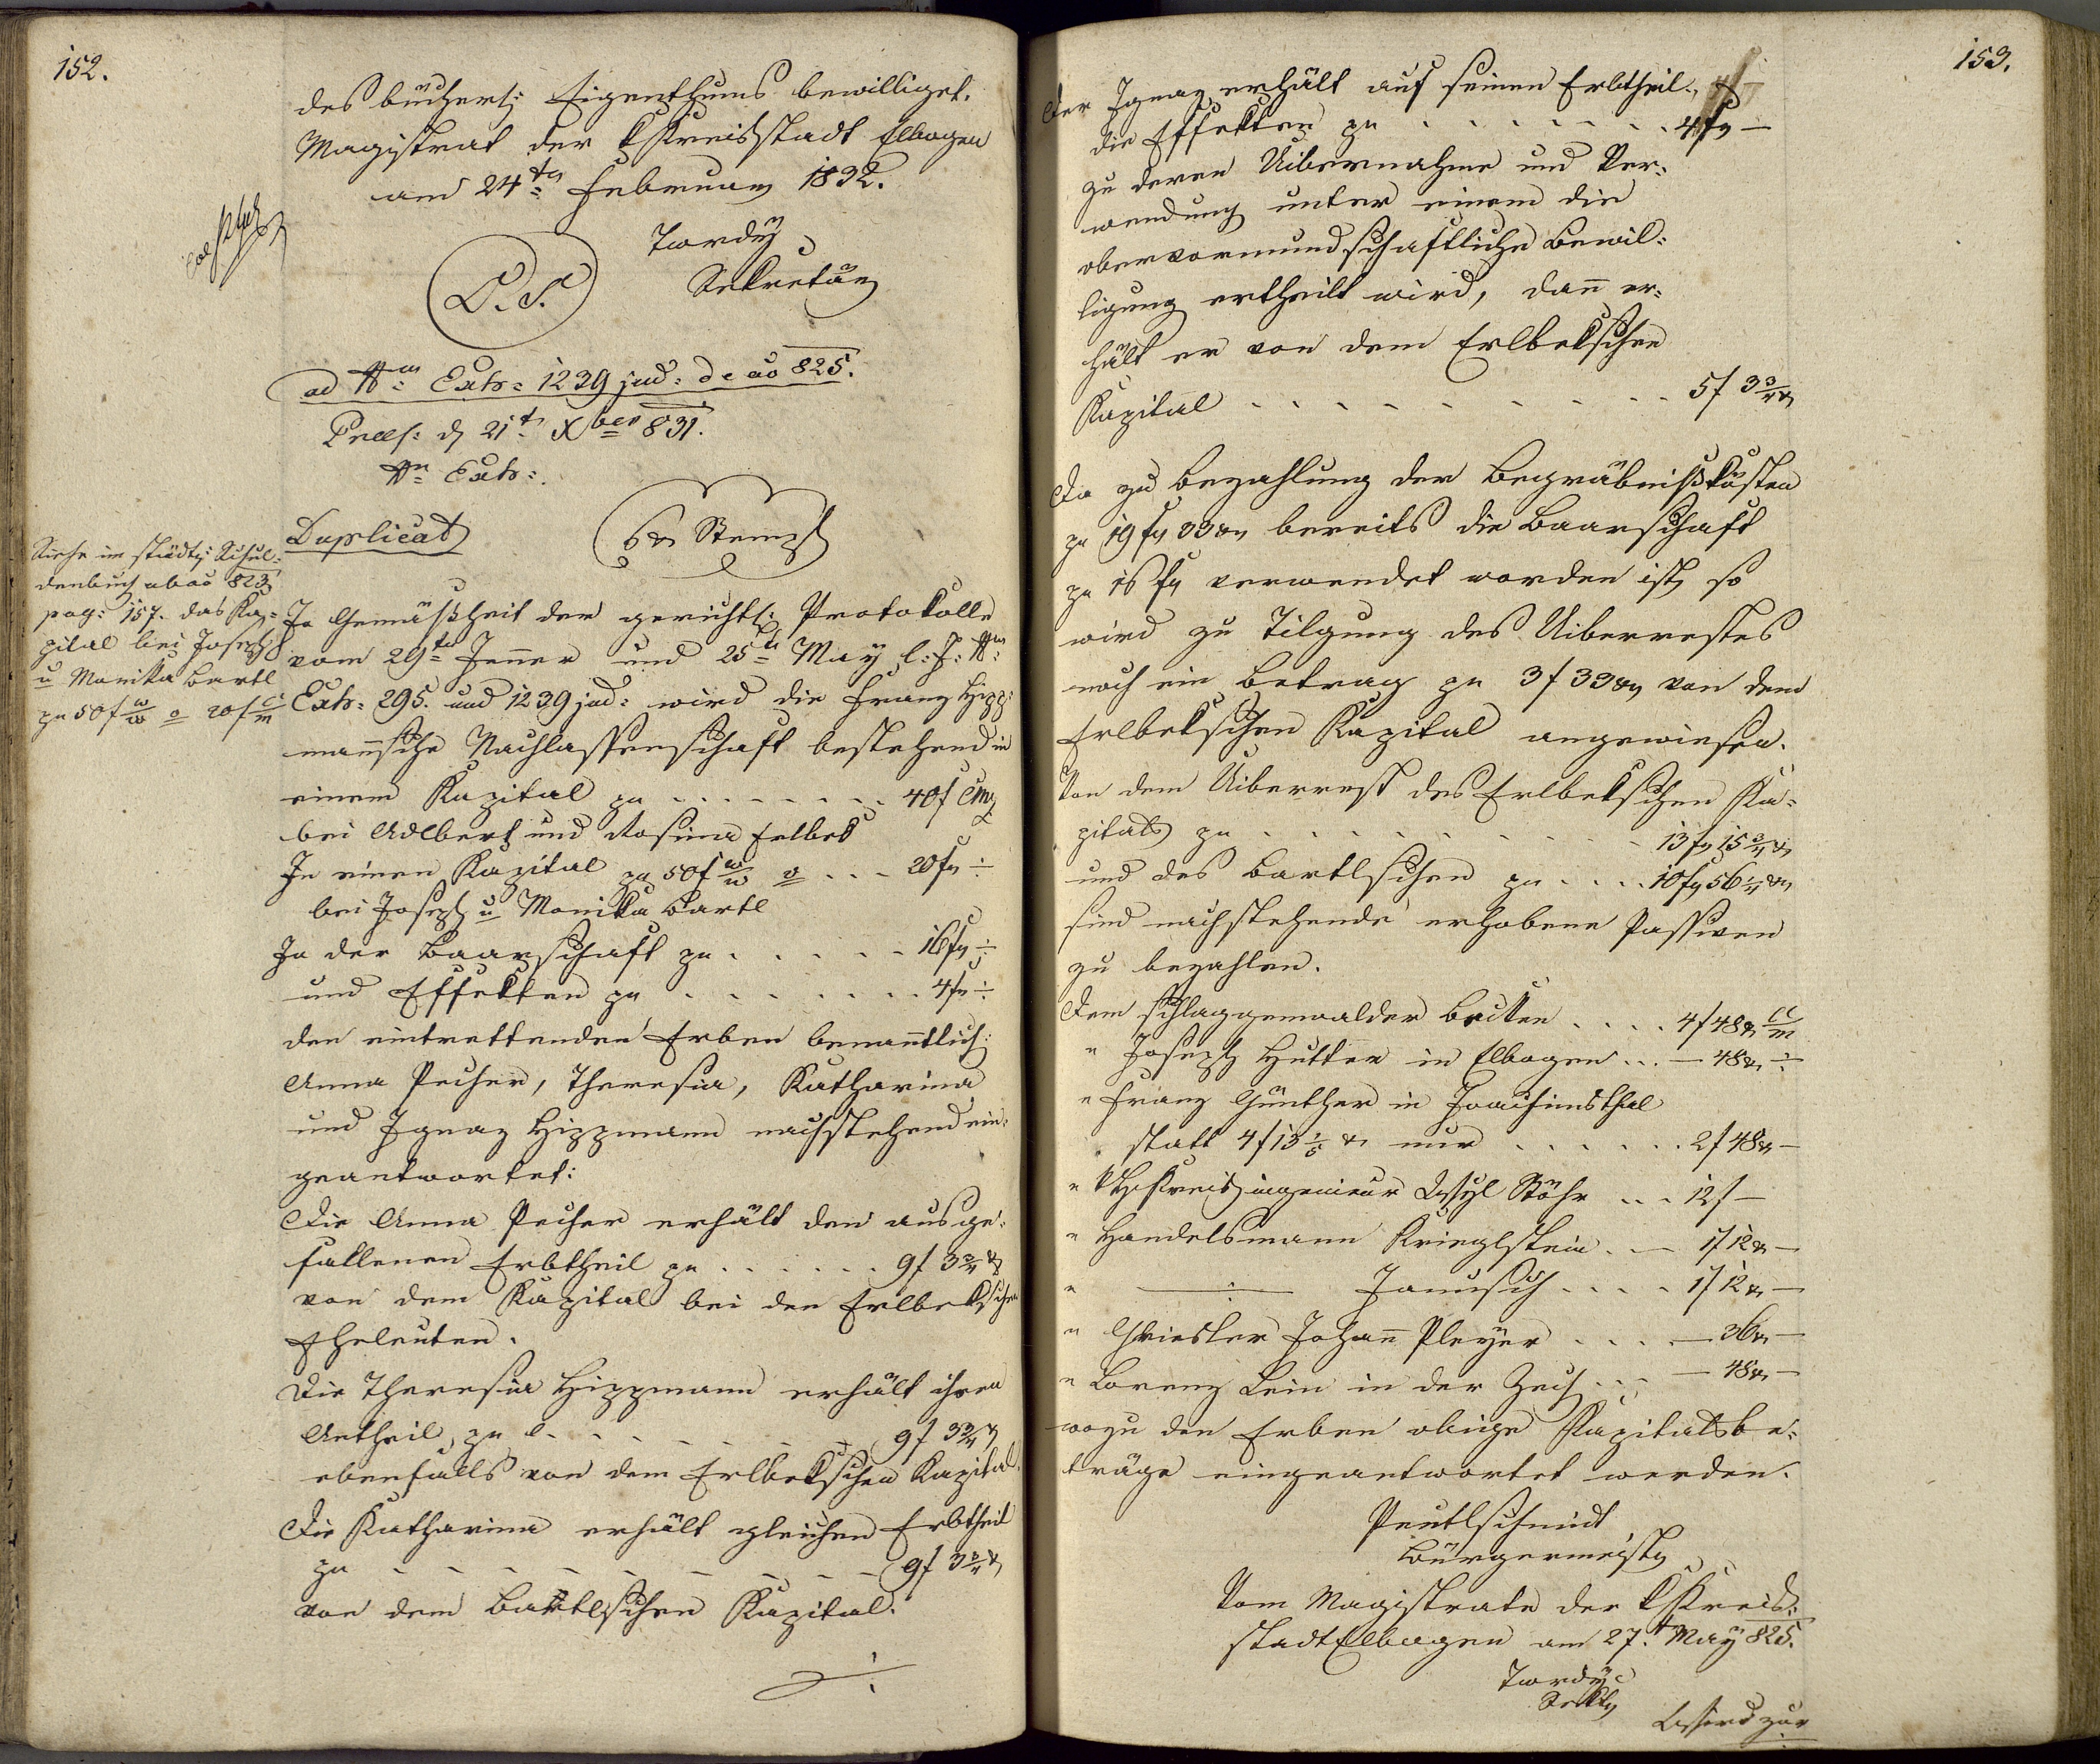 152.
des bücherl: Eigenthums bewilliget.
Magistrat der k Kreisstadt Elbogen
am 24tn Februar 1832.
Twrdy
Sekretär
L. S.
ad Nm Exh: 1239 jud: de ao 825.
Präs: d 21t Xber 831.
Nn Exh:
Duplicat
6 xr Stempl
Siehe im städt: Schul-
denbuch ab ao 823
pag: 157. das Ka-
pital bei Joseph
u Monika Bartl
pr 50f W/W a 20f C/M
In Gemäßheit der gerichtl: Protokolle
vom 29tn Jenner und 25tn May l: J: Nm
Exh: 295. und 1239 jud: wird die Franz Hipp-
mannsche Nachlassenschaft bestehend in
einem Kapital pr - - - - 40f CMz
bei Adlbert und Rosina Erlbek
In einen Kapital pr 50f W/W a . . . 20fr ÷
bei Joseph u Monika Bartl
In der Baarschaft pr . . . . . 16fr ÷
und Effekten pr . . . . . . 4fr ÷
den eintrettenden Erben benanntlich:
Anna Pecher, Theresia, Katharina
und Ignaz Hippmann nachstehend ein-
geantwortet:
Die Anna Pecher erhält den ausge-
fallenen Erbtheil pr . . . . . . 9f 3 3/4 xr
von dem Kapital bei den Erlbekschen
Eheleuten.
Die Theresia Hippmann erhält ihren
Antheil pr . . . . . . 9f 3 3/4 xr
ebenfalls von dem Erlbekschen Kapital.
Die Katharina erhält gleichen Erbtheil
pr - - - - - - - - 9f 3 3/4 xr
von dem Bartlschen Kapital.
153.
Der Ignaz erhält auf seinen Erbtheil
die Effekten pr . . . . . . . 4fr —
zu deren Uibernahme und Ver-
wendung unter einem die
obervormundschaftliche Bewil-
ligung ertheilt wird, dann er-
hält er von dem Erlbekschen
Kapital - - - - - - - - 5f 3 3/4 xr
Da zu Bezahlung der Begräbnißkösten
pr 19 fr 33 xr bereits die Baarschaft
pr 16 fr verwendet worden ist, so
wird zu Tilgung des Uiberrestes
noch ein Betrag pr 3f 33 xr von dem
Erlbekschen Kapital angewiesen.
Von dem Uiberrest des Erlbekschen Ka-
pitals pr . . . . . . . . 13 fr 15 3/4 xr
und des Bartlschen pr . . . . 10 fr 56 1/4 xr
sind nachstehende erhobene Passiven
zu bezahlen.
Dem Schlaggenwalder . . . . 4f 48 xr C/M
" Joseph Hutter in Elbogen . . . — 48 xr ÷
" Franz Günther in Joachimsthal
statt 4f 13 1/5 xr nur . . . . . . 2f 48 xr —
" k Kreisingenieur Stöhr . . . 12f —
" Handelsmann Krieglstein . . — 1f 12 xr —
" —÷— Janusch . . . . 1f 12 xr —
" Johann Pleyer . . . . — 36 xr —
" Lorenz Lein in der Zech . . . — 48 xr —
wozu den Erben obige Kapitalsbe-
träge eingeantwortet werden.
Peutlschmidt
Bürgermeister
Vom Magistrate der k Kreis-
stadt Elbogen am 27. t May 825.
Twrdy
Sekt